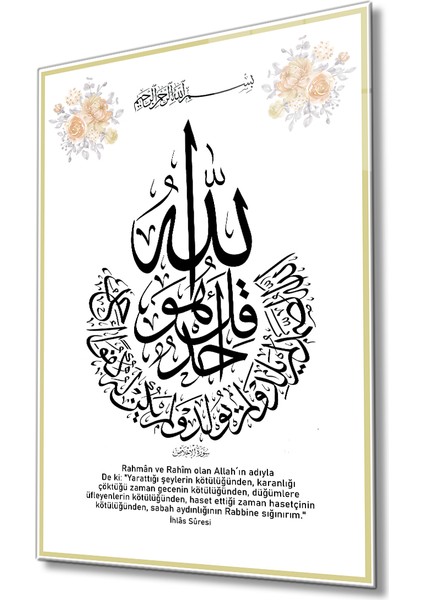 بسم الله الرحمن الرحيم
قل هو الله أحد
الله الصمد لم يلد ولم يولد ولم يكن له كفوا أحد
سورة الإخلاص
Rahmân ve Rahîm olan Allah´ın adıyla
De ki: "Yarattığı şeylerin kötülüğünden, karanlığı
çöktüğü zaman gecenin kötülüğünden, düğümlere
üfleyenlerin kötülüğünden, haset ettiği zaman hasetçinin
kötülüğünden, sabah aydınlığının Rabbine sığınırım."
İhlâs Sûresi